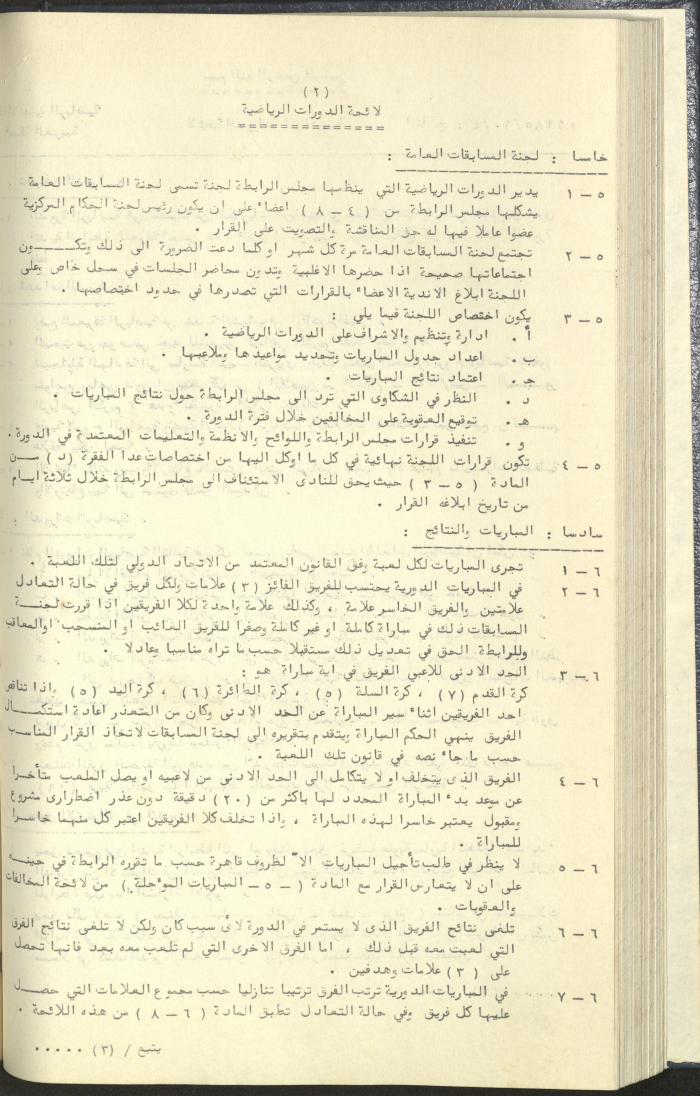 ( ٢ )
لائحة الدورات الرياضية
خامسا : لجنة المسابقات العامة :
٥ – ١ يدير الدورات الرياضية التي ينظمها مجلس الرابطة لجنة تسمى لجنة المسابقات العامة
يشكلها مجلس الرابطة من ( ٤ – ٨ ) اعضاء على ان يكون رئيس لجنة الحكام المركزية
عضوا عاملا فيها له حق المناقشة والتصويت على القرار .
٥ – ٢ تجتمع لجنة المسابقات العامة مرة كل شهر او كلما دعت الضرورة الى ذلك وتكــــون
اجتماعاتها صحيحة اذا حضرها الاغلبية وتدون محاضر الجلسات في سجل خاص وعلى
اللجنة ابلاغ الاندية الاعضاء بالقرارات التي تصدرها في حدود اختصاصها .
٥ – ٣ يكون اختصاص اللجنة فيما يلي :
أ . ادارة وتنظيم والاشراف على الدورات الرياضية .
ب . اعداد جدول المباريات وتحديد مواعيدها وملاعبها .
جـ . اعتماد نتائج المباريات .
د . النظر في الشكاوى التي ترد الى مجلس الرابطة حول نتائج المباريات .
هـ . توقيع العقوبة على المخالفين خلال فترة الدورة .
و . تنفيذ قرارات مجلس الرابطة واللوائح والانظمة والتعليمات المعتمدة في الدورة .
٥ – ٤ تكون قرارات اللجنة نهائية في كل ما اوكل اليها من اختصاصات عدا الفقرة ( د ) مــن
المادة ( ٥ – ٣ ) حيث يحق للنادى الاستئناف الى مجلس الرابطة خلال ثلاثة ايـام
من تاريخ ابلاغه القرار .
سادسا : المباريات والنتائج :
٦ – ١ تجرى المباريات لكل لعبة وفق القانون المعتمد من الاتحاد الدولي لتلك اللعبة .
٦ – ٢ في المباريات الدورية يحتسب للفريق الفائز ( ٣ ) علامات ولكل فريق في حالة التعادل
علامتين والفريق الخاسر علامة ، وكذلك علامة واحدة لكلا الفريقين اذا قررت لجنـــة
المسابقات ذلك في مباراة كاملة او غير كاملة وصفرا للفريق الغائب او المنسحب اوالمعاقب
وللرابطة الحق في تعديل ذلك مستقبلا حسب ما تراه مناسبا وعادلا .
٦ – ٣ الحد الادنى للاعبي الفريق في اية مباراة هو :
كرة القدم ( ٧ ) ، كرة السلة ( ٥ ) ، كرة الطائرة ( ٦ ) ، كرة اليد ( ٥ ) واذا تناقص
احد الفريقين اثناء سير المباراة عن الحد الادنى وكان من المتعذر اعادة استكمــــال
الفريق ينهي الحكم المباراة ويتقدم بتقريره الى لجنة المسابقات لاتخاذ القرار المناسب
حسب ما جاء نصه في قانون تلك اللعبة .
٦ – ٤ الفريق الذى يتخلف او لا يتكامل الى الحد الادنى من لاعبيه او يصل الملعب متأخـرا
عن موعد بدء المباراة المحدد لها باكثر من ( ٢٠ ) دقيقة دون عذر اضطرارى مشروع
ومقبول يعتبر خاسرا لهذه المباراة ، واذا تخلف كلا الفريقين اعتبر كل منهما خاسـرا
للمباراة .
٦ – ٥ لا ينظر في طلب تأجيل المباريات الا لظروف قاهرة حسب ما تقرره الرابطة في حينــه
على ان لا يتعارض القرار مع المادة ( – ٥ – المباريات المؤجلة ) من لائحة المخالفات
والعقوبات .
٦ – ٦ تلغى نتائج الفريق الذى لا يستمر في الدورة لأى سبب كان ولكن لا تلغى نتائج الفرق
التي لعبت معه قبل ذلك ، اما الفرق الاخرى التي لم تلعب معه بعد فانها تحصل
على ( ٣ ) علامات وهدفين .
٦ – ٧ في المباريات الدورية ترتب الفرق ترتيبا تنازليا حسب مجموع العلامات التي حصـــل
عليها كل فريق وفي حالة التعادل تطبق المادة ( ٦ – ٨ ) من هذه اللائحة .
يتبع / ( ٣ ) . . . . .